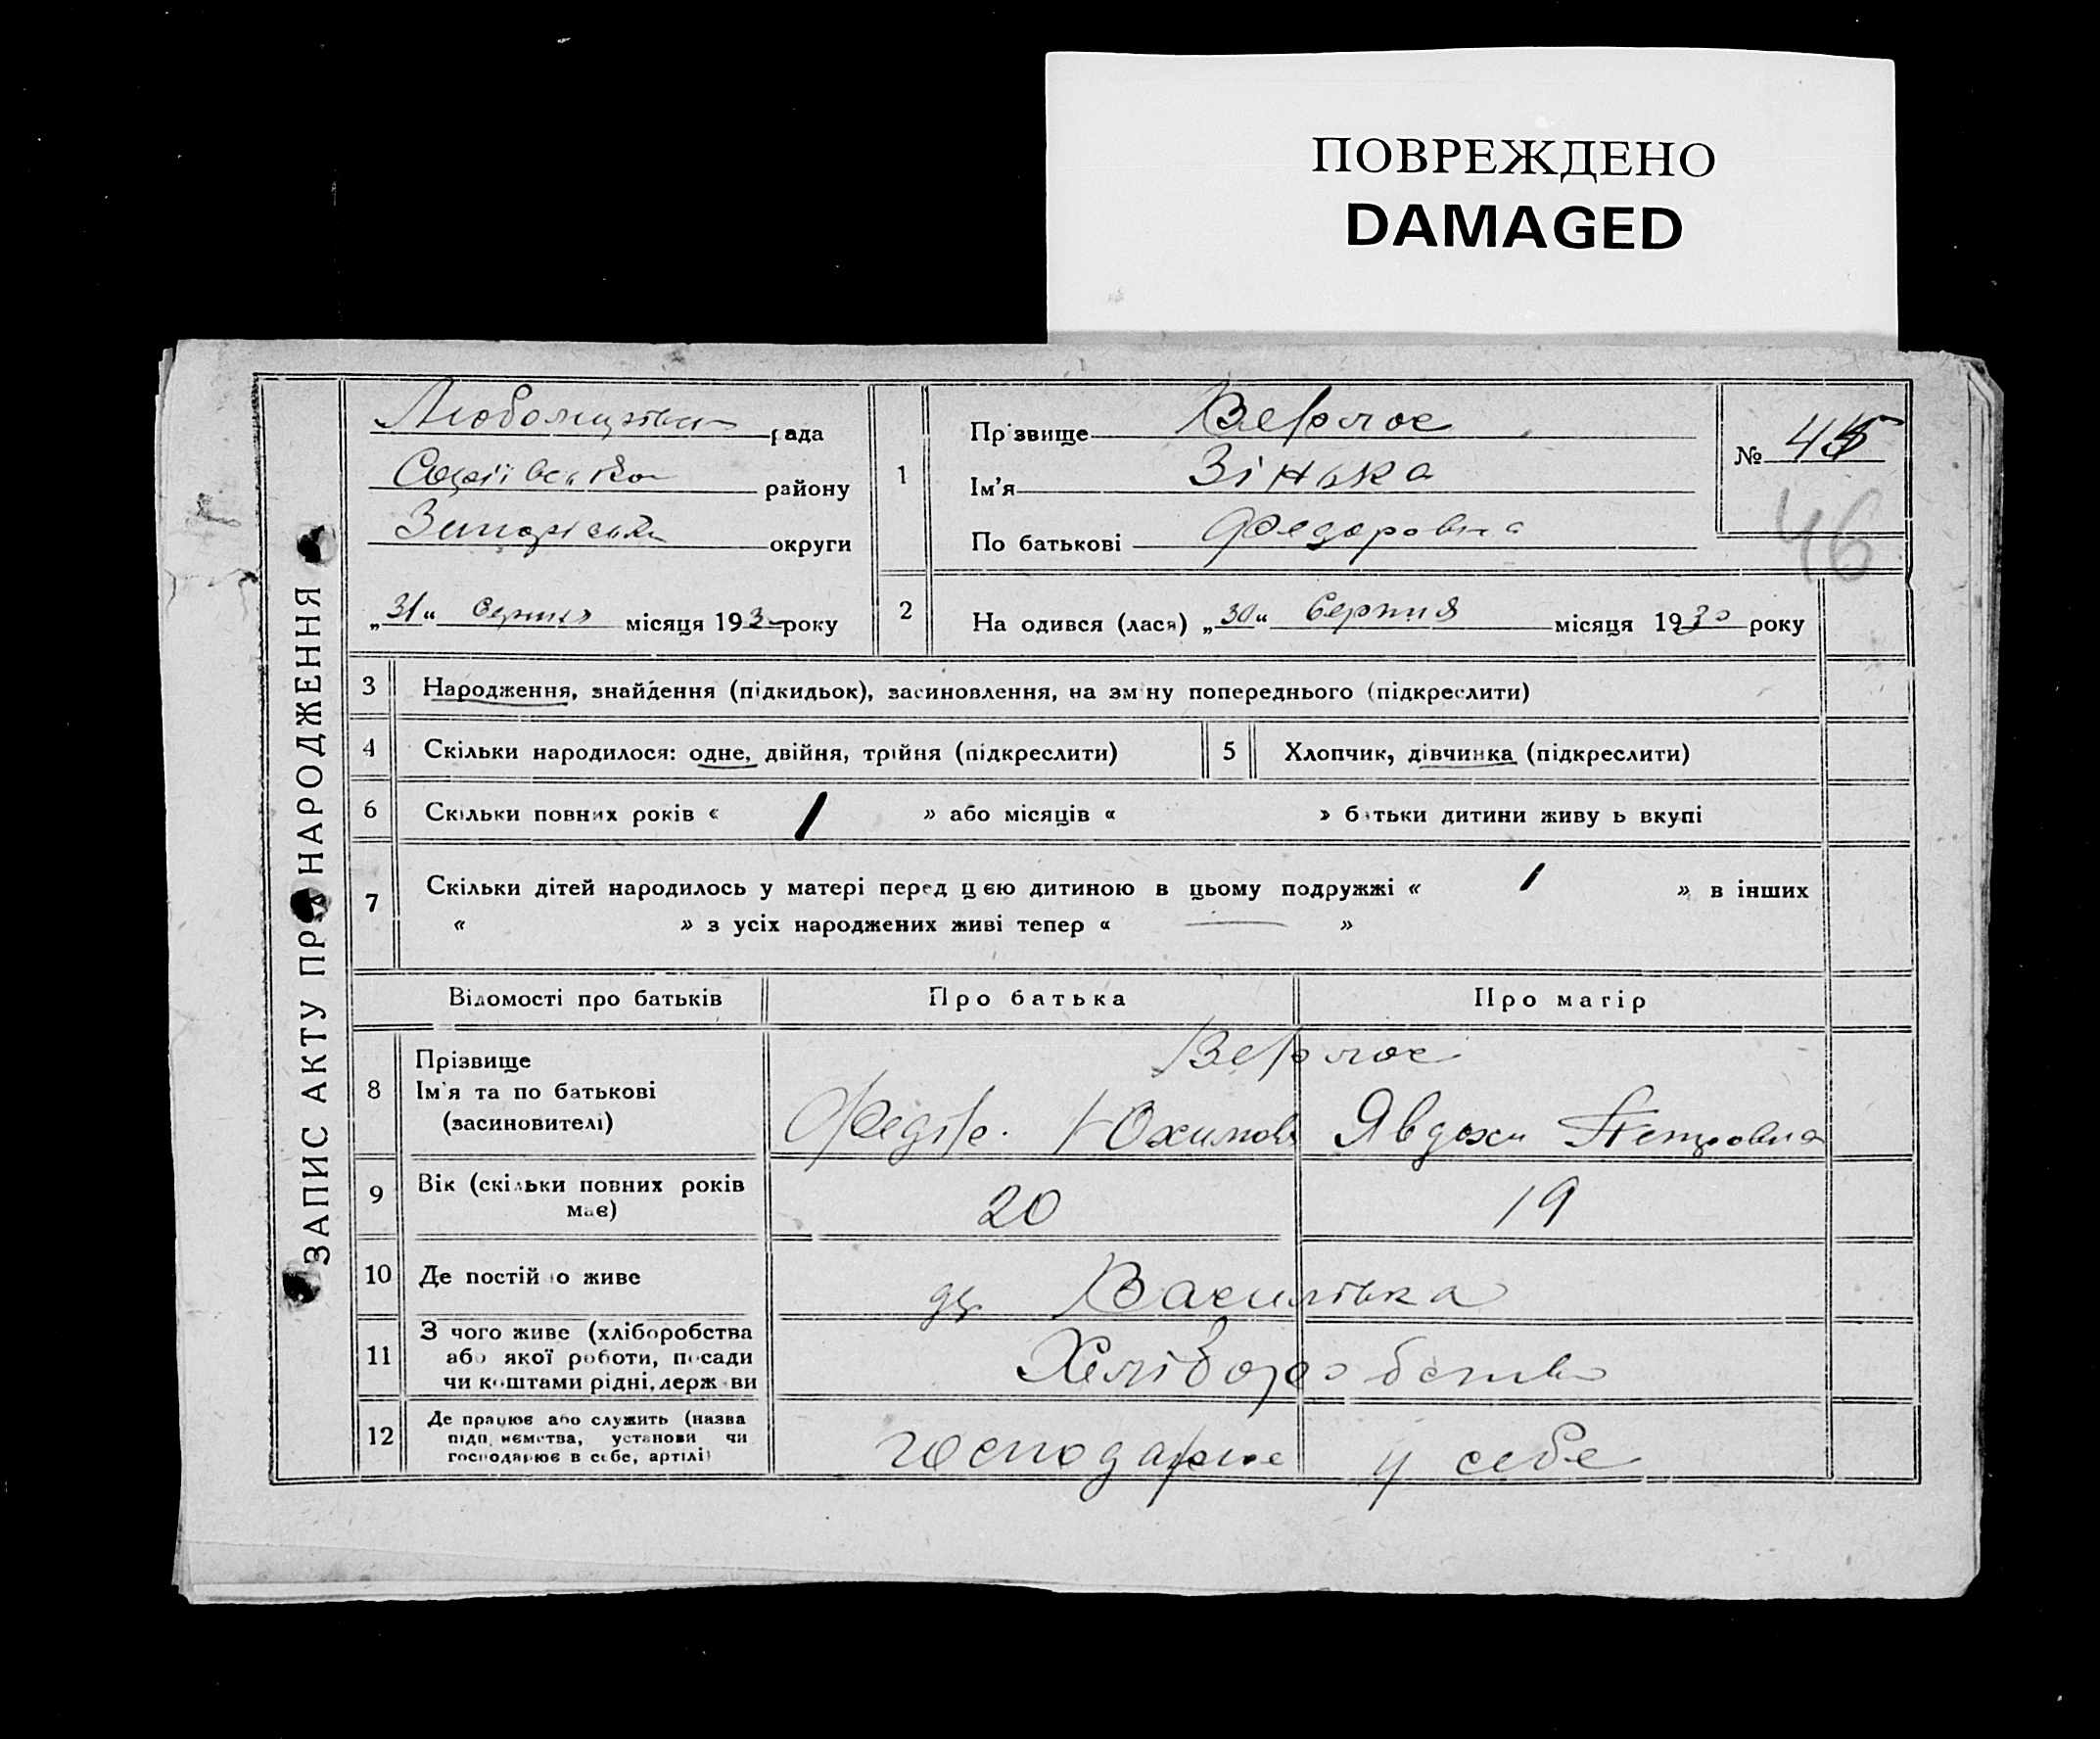 ПОВРЕЖДЕНО
DAMAGED
ЗАПИС АКТУ ПРО НАРОДЖЕННЯ
рада
району
округи
„31“ Серпня місяця 193 року
1
Прізвище
Ім'я Зінька
По батькові Федоровна
№ 45
46
2
На одився (лася) „30“ Серпня місяця 1930 року
3
Народження, знайдення (підкидьок), засиновлення, на зм ну попереднього (підкреслити)
4
Скільки народилося: одне, двійня, трійня (підкреслити)
5
Хлопчик, дівчинка (підкреслити)
6
Скільки повних років « / » або місяців « » батьки дитини живу ь вкупі
7
Скільки дітей народилось у матері перед цією дитиною в цьому подружжі « / » в інших
« » з усіх народжених живі тепер « — »
Відомості про батьків
Про батька
Про матір
8
Прізвище
Ім'я та по батькові
(засиновителі)
Федір. Юхимов
Явдоха Петровна
9
Вік (скільки повних років
має)
20
19
10
Де постій о живе
Василівка
11
З чого живе (хліборобства
або якої роботи, посади
чи коштами рідні, держ ви
12
Де працює або служить (назва
підп иємства, установи чи
господарює в себе, артілі)
господарює у себе